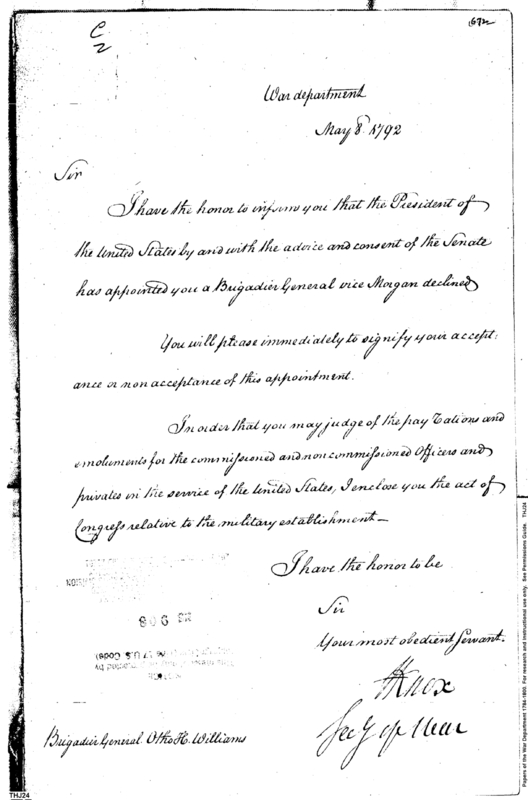 C
2
672
War department
May 8th 1792
Sir
I have the honor to inform you that the President of
the United States by and with the advice and consent of the Senate
has appointed you a Brigadier General vice Morgan declined
You will please immediately to signify your accept:
ance or non acceptance of this appointment.
In order that you may judge of the pay Rations and
emoluments for the commissioned and non commissioned Officers and
privates in the service of the United States, I enclose you the act of
Congress relative to the military establishment—
I have the honor to be
Sir
Your most obedient Servant.
HKnox
Secy of War
Brigadier General Otho H. Williams
THJ24
Papers of the War Department 1784-1800. For research and instructional use only. See Permissions Guide. THJ24